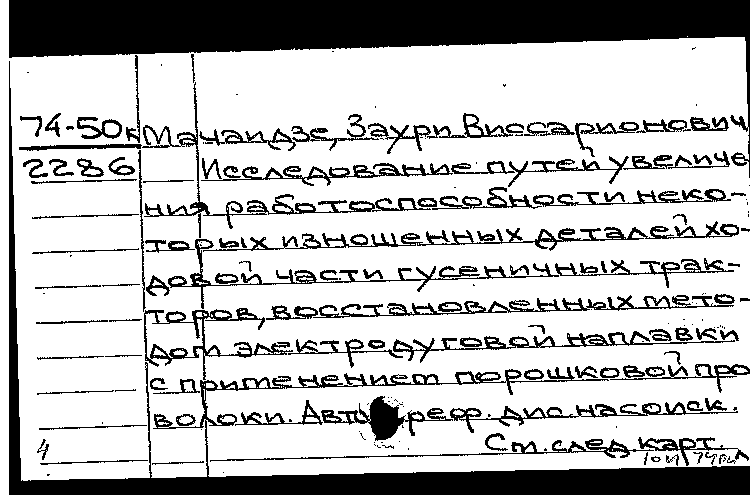 74-50к Мачаидзе, Заури Виссарионович
2286 Исследование путей увеличе
ния работоспособности неко-
торых изношенных деталей хо-
довой части гусеничных трак-
торов, восстановленных мето-
дом электродуговой наплавки
с применением порошковой про
волоки. Автореф. дис. на соиск.
См. след. карт.
4